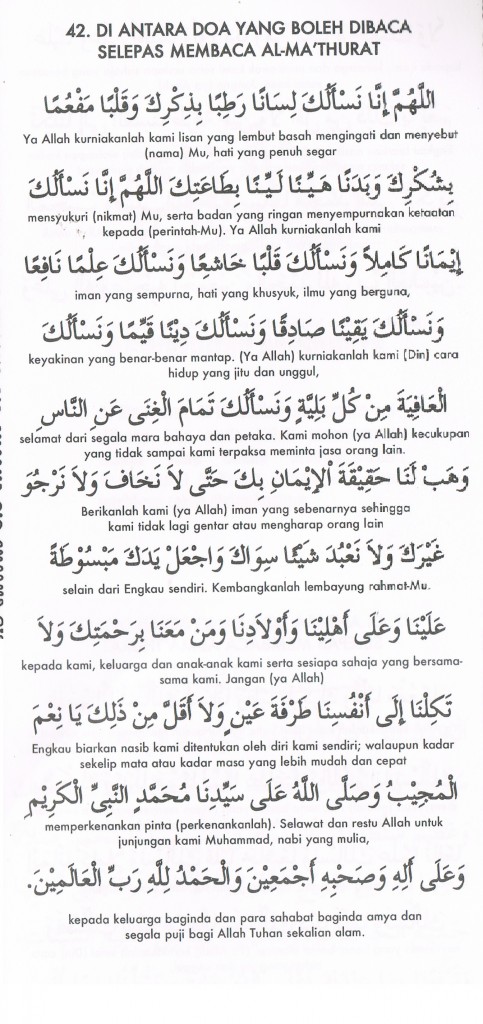 42. DI ANTARA DOA YANG BOLEH DIBACA
SELEPAS MEMBACA AL-MA'THURAT
اَللَّهُمَّ إِنَّا نَسْأَلُكَ لِسَانًا رَطِبًا بِذِكْرِكَ وَقَلْبًا مَفْعُمًا
Ya Allah kurniakanlah kami lisan yang lembut basah mengingati dan menyebut
(nama) Mu, hati yang penuh segar
بِشُكْرِكَ وَبَدَنًا هَيِّنًا لَيِّنًا بِطَاعَتِكَ اَللَّهُمَّ إِنَّا نَسْأَلُكَ
mensyukuri (nikmat) Mu, serta badan yang ringan menyempurnakan ketaatan
kepada (perintah-Mu). Ya Allah kurniakanlah kami
إِيْمَانًا كَامِلاً وَنَسْأَلُكَ قَلْبًا خَاشِعًا وَنَسْأَلُكَ عِلْمًا نَافِعًا
iman yang sempurna, hati yang khusyuk, ilmu yang berguna,
وَنَسْأَلُكَ يَقِيْنًا صَادِقًا وَنَسْأَلُكَ دِيْنًا قَيِّمًا وَنَسْأَلُكَ
keyakinan yang benar-benar mantap. (Ya Allah) kurniakanlah kami (Din) cara
hidup yang jitu dan unggul,
الْعَافِيَةَ مِنْ كُلِّ بَلِيَّةٍ وَنَسْأَلُكَ تَمَامَ الْغِنَى عَنِ النَّاسِ
selamat dari segala mara bahaya dan petaka. Kami mohon (ya Allah) kecukupan
yang tidak sampai kami terpaksa meminta jasa orang lain.
وَهَبْ لَنَا حَقِيْقَةَ اْلإِيْمَانِ بِكَ حَتَّى لاَ نَخَافَ وَلاَ نَرْجُوَ
Berikanlah kami (ya Allah) iman yang sebenarnya sehingga
kami tidak lagi gentar atau mengharap orang lain
غَيْرَكَ وَلاَ نَعْبُدَ شَيْئًا سِوَاكَ وَاجْعَلْ يَدَكَ مَبْسُوْطَةً
selain dari Engkau sendiri. Kembangkanlah lembayung rahmat-Mu.
عَلَيْنَا وَعَلَى أَهْلِيْنَا وَأَوْلاَدِنَا وَمَنْ مَعَنَا بِرَحْمَتِكَ وَلاَ
kepada kami, keluarga dan anak-anak kami serta sesiapa sahaja yang bersama-
sama kami. Jangan (ya Allah)
تَكِلْنَا إِلَى أَنْفُسِنَا طَرْفَةَ عَيْنٍ وَلاَ أَقَلَّ مِنْ ذَلِكَ يَا نِعْمَ
Engkau biarkan nasib kami ditentukan oleh diri kami sendiri; walaupun kadar
sekelip mata atau kadar masa yang lebih mudah dan cepat
الْمُجِيْبُ وَصَلَّى اللَّهُ عَلَى سَيِّدِنَا مُحَمَّدٍ النَّبِيِّ الْكَرِيْمِ
memperkenankan pinta (perkenankanlah). Selawat dan restu Allah untuk
junjungan kami Muhammad, nabi yang mulia,
وَعَلَى أَلِهِ وَصَحْبِهِ أَجْمَعِيْنَ وَالْحَمْدُ لِلَّهِ رَبِّ الْعَالَمِيْنَ.
kepada keluarga baginda dan para sahabat baginda amya dan
segala puji bagi Allah Tuhan sekalian alam.